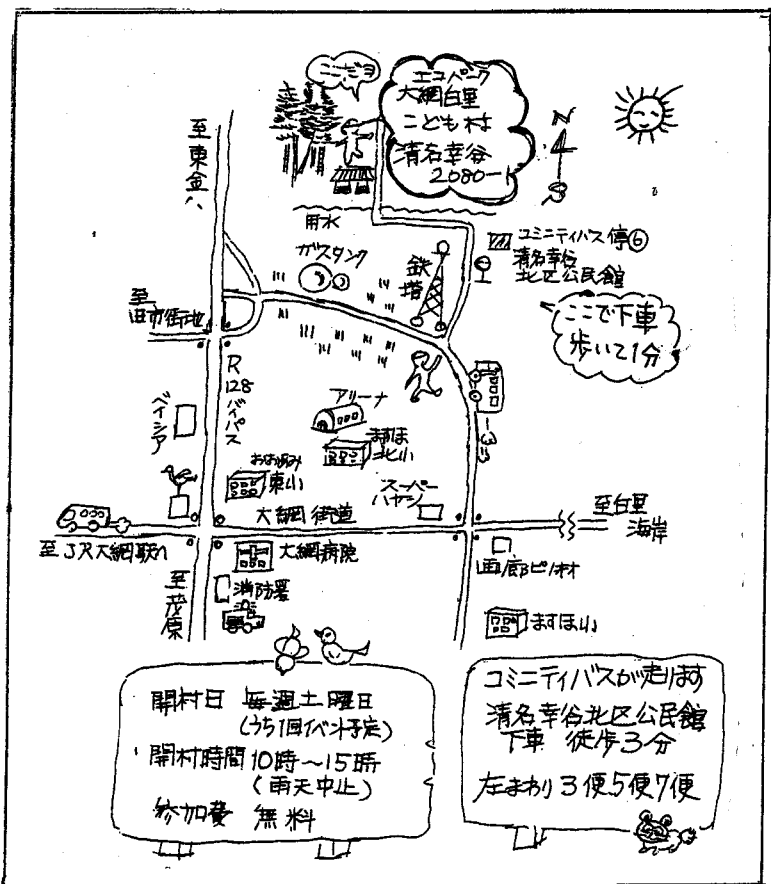 ここだヨ
エコパーク
大網白里
こども村
清名幸谷
2080-1
N
S
至東金へ
用水
ガスタンク
鉄塔
コミニティバス停⑥
清名幸谷
北区公民館
至
旧市街地
ここで下車
歩いて1分
R
128
バイパス
ベイシア
アリーナ
ますほ
北小
おおあみ
東小
スーパー
ハヤシ
大網街道
至白里
海岸
至JR大網駅へ
大網病院
画廊ピノキオ
至茂原
消防署
ますほ小
開村日 毎週土曜日
(うち1回イベント予定)
開村時間 10時〜15時
(雨天中止)
参加費 無料
コミニティバスが走ります
清名幸谷北区公民館
下車 徒歩3分
左まわり3便5便7便